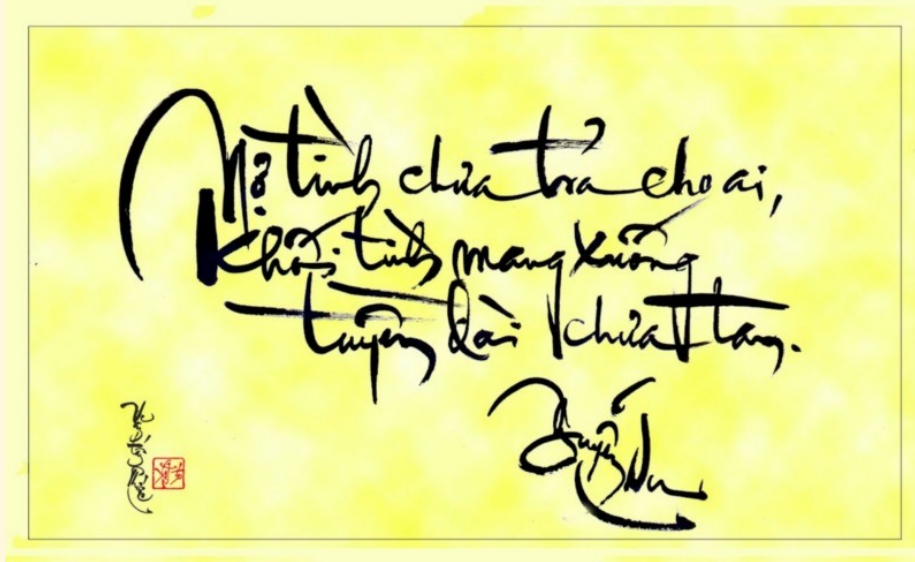 Nợ tình chưa trả cho ai,
khối tình mang xuống
tuyền đài chưa tan.
Nguyễn Du